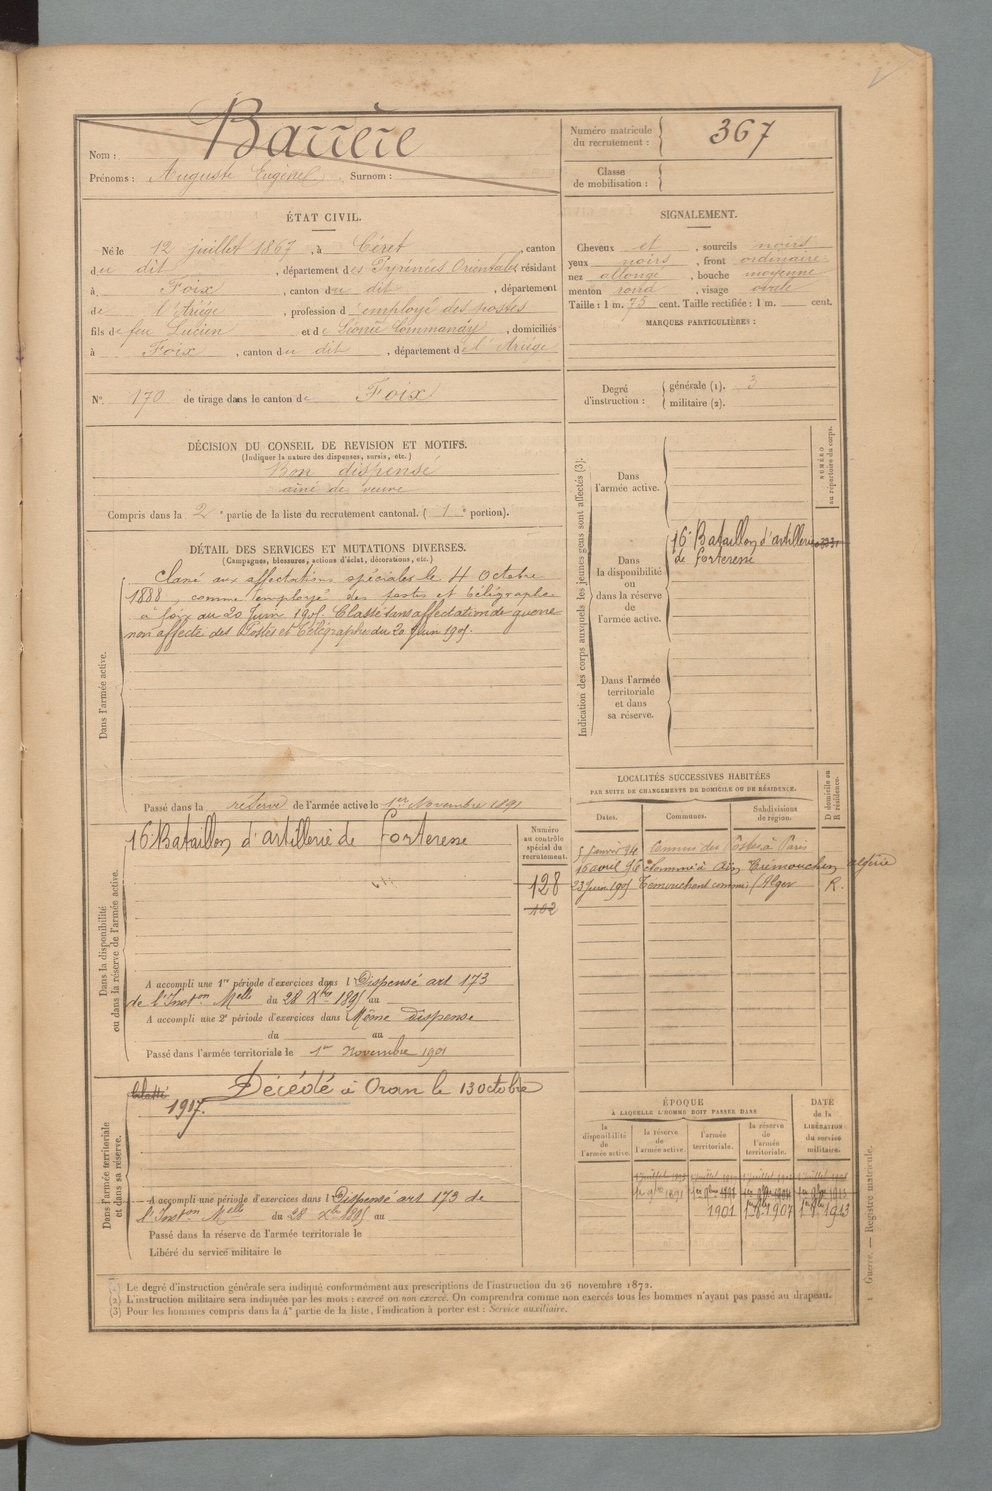 Nom : Barrère
Prénoms : Auguste Eugène Surnom :
Numéro matricule du recrutement : 367
Classe de mobilisation :
ÉTAT CIVIL.
Né le 12 juillet 1867, à Céret, canton
du dit, département des Pyrénées Orientales résidant
à Foix, canton du dit, département
de l'Ariège, profession d'employé des postes
fils de feu Lucien et de Léonie Commanay, domiciliés
à Foix, canton du dit, département de l'Ariège
SIGNALEMENT.
Cheveux et, sourcils noirs
yeux noirs, front ordinaire
nez allongé, bouche moyenne
menton rond, visage ovale
Taille : 1 m. 75 cent. Taille rectifiée : 1 m. cent.
MARQUES PARTICULIÈRES :
N° 170 de tirage dans le canton de Foix
Degré d'instruction : générale (1). 3
militaire (2).
DÉCISION DU CONSEIL DE REVISION ET MOTIFS.
(Indiquer la nature des dispenses, sursis, etc.)
Bon dispensé
aîné de veuve
Compris dans la 2e partie de la liste du recrutement cantonal. (1e portion).
DÉTAIL DES SERVICES ET MUTATIONS DIVERSES.
(Campagnes, blessures, actions d'éclat, décorations, etc.)
Dans l'armée active.
Classé aux affectations spéciales le 4 Octobre
1888, comme employé des postes et télégraphe
à foix au 20 Juin 1905. Classé sans affectation de guerre
non affecté des Postes et Télégraphes du 20 Juin 1905.
Passé dans la réserve de l'armée active le 1er Novembre 1891
Indication des corps auxquels les jeunes gens sont affectés (3).
NUMÉRO au répertoire du corps.
Dans l'armée active.
Dans la disponibilité ou dans la réserve de l'armée active.
16e Bataillon d'artillerie
de forteresse
Dans l'armée territoriale et dans sa réserve.
Dans la disponibilité ou dans la réserve de l'armée active.
16e Bataillon d'artillerie de forteresse
Numéro au contrôle spécial du recrutement.
128
102
A accompli une 1re période d'exercices dans l Dispensé art 173
de l'Inston Melle du 28 Xbre 1895 au
A accompli une 2e période d'exercices dans Même dispense
du au
Passé dans l'armée territoriale le 1er Novembre 1901
LOCALITÉS SUCCESSIVES HABITÉES
PAR SUITE DE CHANGEMENTS DE DOMICILE OU DE RÉSIDENCE.
Dates. Communes. Subdivisions de région. D domicile ou R résidence.
5 Janvier 94 Commis des Postes à Paris
15 avril 96 Nommé à Aïn Trémouchen algérie
23 Juin 1905 Temouchent commis / Alger R.
Dans l'armée territoriale et dans sa réserve.
Classé
Décédé à Oran le 13 octobre
1917.
A accompli une période d'exercices dans l Dispensé art 173 de
l'Inston Melle du 28 Xbre 1895 au
Passé dans la réserve de l'armée territoriale le
Libéré du service militaire le
ÉPOQUE
À LAQUELLE L'HOMME DOIT PASSER DANS
la disponibilité de l'armée active. la réserve de l'armée active. l'armée territoriale. la réserve de l'armée territoriale.
DATE de la LIBÉRATION du service militaire.
1er 9bre 1891
1901 1er 9bre 1907 1er 9bre 1913
(1) Le degré d'instruction générale sera indiqué conformément aux prescriptions de l'instruction du 26 novembre 1872.
(2) L'instruction militaire sera indiquée par les mots : exercé ou non exercé. On comprendra comme non exercés tous les hommes n'ayant pas passé au drapeau.
(3) Pour les hommes compris dans la 4e partie de la liste, l'indication à porter est : Service auxiliaire.
Guerre. — Registre matricule.